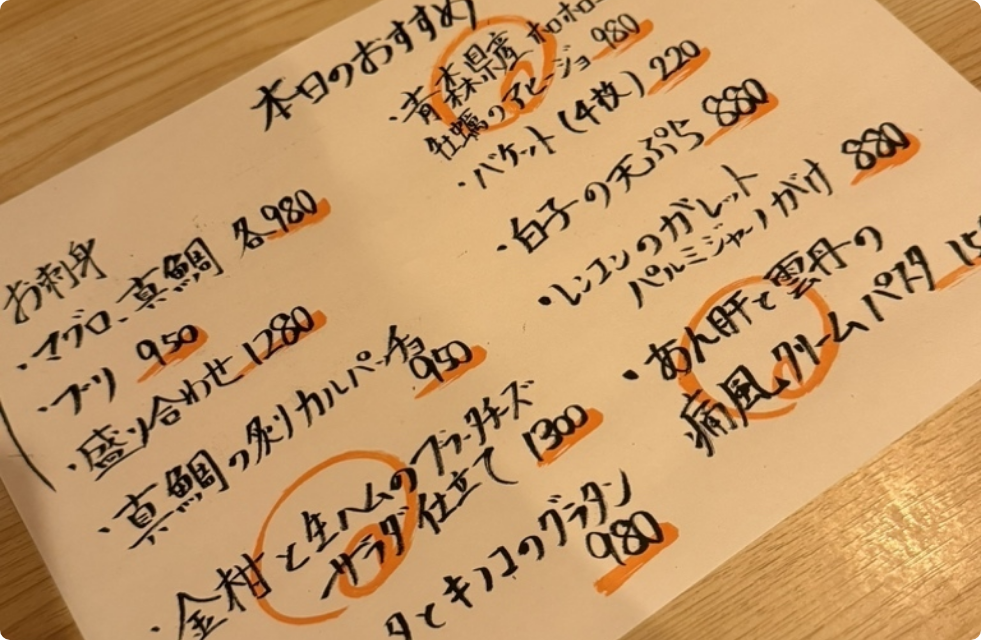 本日のおすすめ
お刺身
・マグロ、真鯛 各980
・ブリ 950
・盛り合わせ 1280
・真鯛の炙りカルパッチョ
950
・金柑と生ハムのブラータチーズ
サラダ仕立て 1300
タとキノコのグラタン
980
・青森県産 ホロホロ
牡蠣のアヒージョ 980
・バケット(4枚) 220
・白子の天ぷら 880
・レンコンのガレット
パルミジャーノがけ 880
・あん肝と雲丹の
痛風クリームパスタ